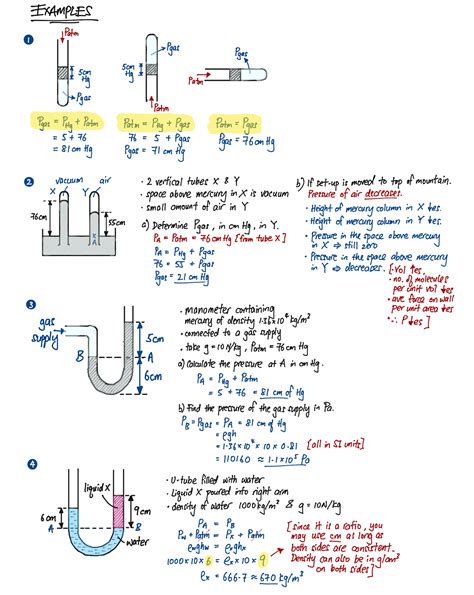 EXAMPLES
1
Patm
5cm Hg
Pgas
Pgas = PHg + Patm
= 5 + 76
= 81 cm Hg
Pgas
5cm Hg
Patm
Patm = PHg + Pgas
76 = 5 + Pgas
Pgas = 71 cm Hg
Patm
Pgas
Patm = Pgas
Pgas = 76 cm Hg
2
vacuum
air
X
Y
76cm
55cm
X
A
• 2 vertical tubes X & Y
• space above mercury in X is vacuum
• small amount of air in Y
a) Determine Pgas, in cm Hg, in Y.
PA = Patm = 76 cm Hg [from tube X]
PA = PHg + Pgas
76 = 55 + Pgas
Pgas = 21 cm Hg
b) If set-up is moved to top of mountain.
Pressure of air decreases.
• Height of mercury column in X ↓es.
• Height of mercury column in Y ↓es.
• Pressure in the space above mercury
in X ⇒ still zero
• Pressure in the space above mercury
in Y ⇒ decreases.
[• Vol ↑es
• no. of molecules
per unit vol ↓es
• ave force on wall
per unit area ↓es
• ∴ P↓es]
3
gas
supply
5cm
B
A
6cm
• manometer containing
mercury of density 1.36×10⁴ kg/m³
• connected to a gas supply
• take g = 10N/kg, Patm = 76 cm Hg
a) Calculate the pressure at A in cm Hg.
PA = PHg + Patm
= 5 + 76 = 81 cm of Hg
b) Find the pressure of the gas supply in Pa.
PB = Pgas = PA = 81 cm of Hg
= ρgh
= 1.36×10⁴ × 10 × 0.81 [all in SI units]
= 110160 ≈ 1.1×10⁵ Pa
4
liquid X
6cm
A
9cm
B
water
• U-tube filled with water
• Liquid X poured into right arm
• density of water 1000kg/m³ & g = 10N/kg
PA = PB
Pw + Patm = Px + Patm
ρwghw = ρxghx
1000×10×6 = ρx×10×9
ρx = 666.7 ≈ 670 kg/m³
[since it is a ratio, you
may use cm as long as
both sides are consistent.
Density can also be in g/cm³
on both sides]